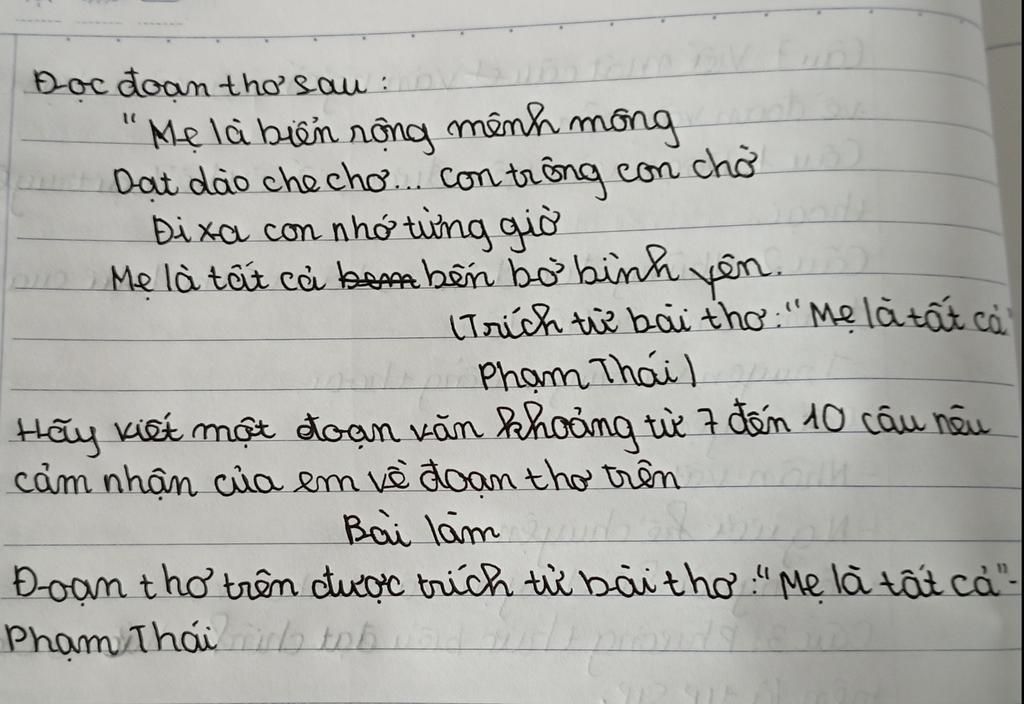 Đọc đoạn thơ sau:
"Mẹ là biển rộng mênh mông
Dạt dào che chơ... con trông con chờ
Đi xa con nhớ từng giờ
Mẹ là tất cả bến bờ bình yên.
(Trích từ bài thơ: "Mẹ là tất cả"
Phạm Thái)
Hãy viết một đoạn văn khoảng từ 7 đến 10 câu nêu
cảm nhận của em về đoạn thơ trên
Bài làm
Đoạn thơ trên được trích từ bài thơ: "Mẹ là tất cả"-
Phạm Thái